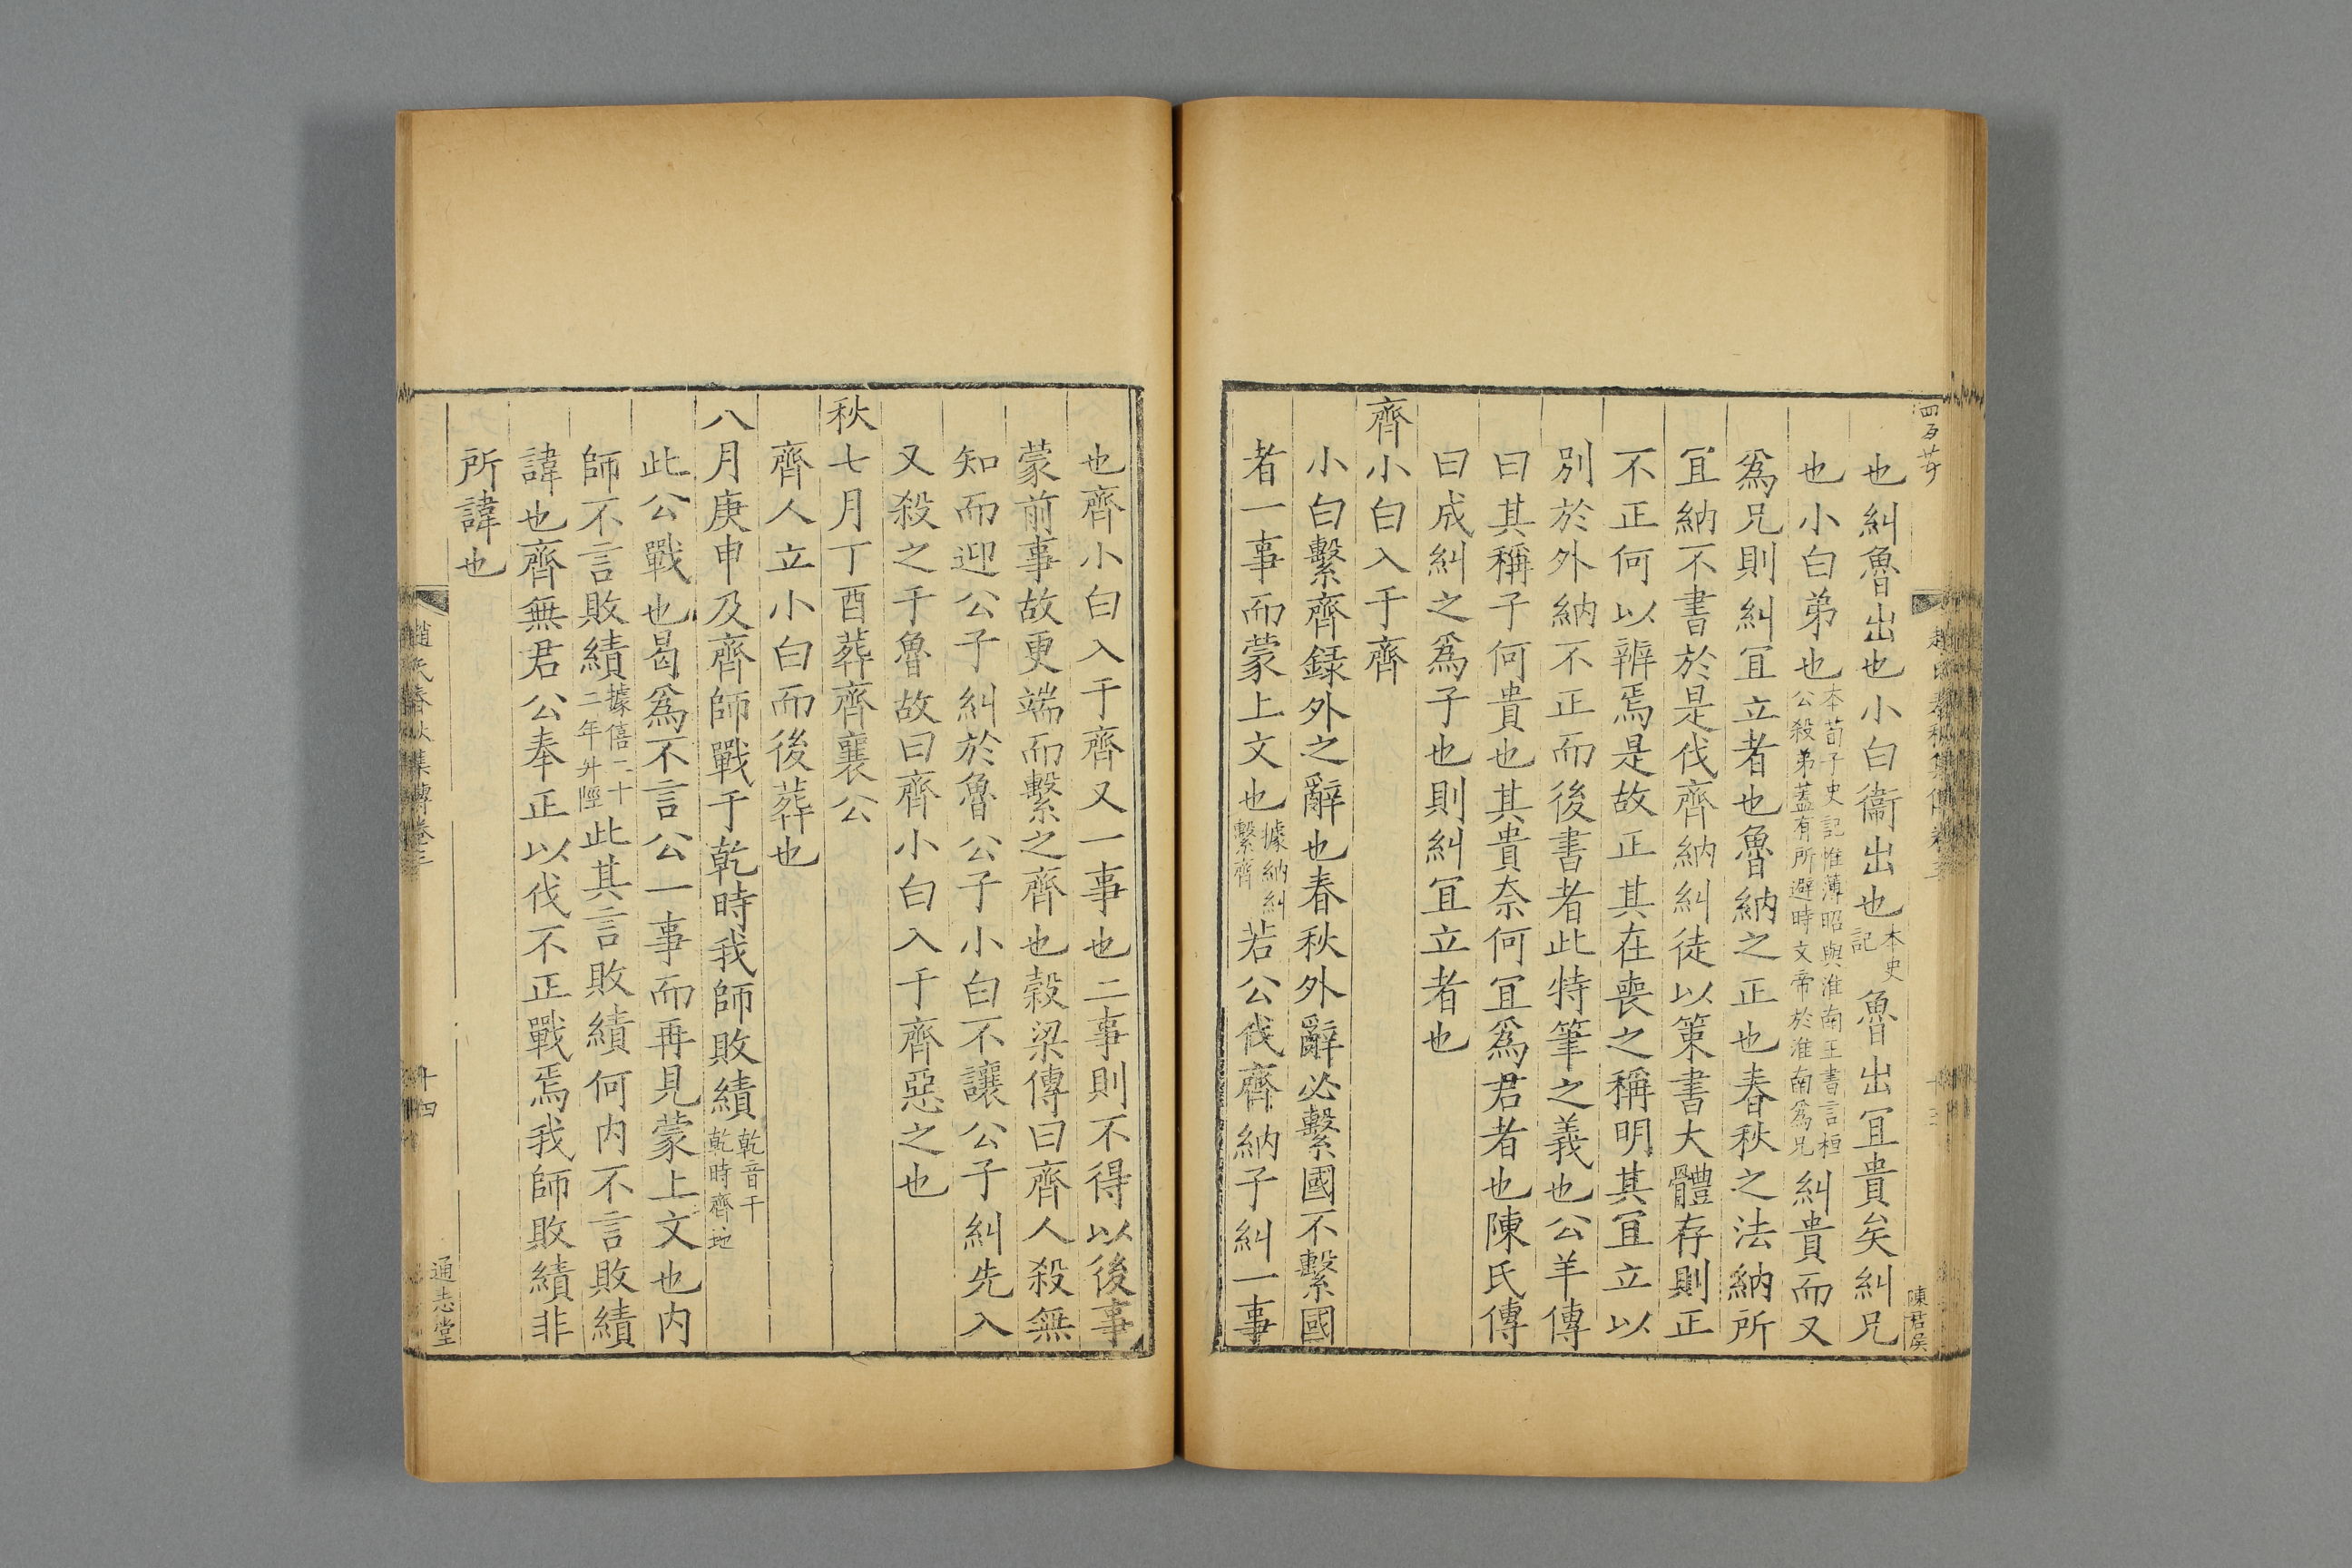 也糾魯出也小白衞出也本史記魯出冝貴矣糾兄
也小白弟也本荀子史記惟薄昭與淮南王書言桓公殺弟蓋有所避時文帝於淮南爲兄糾貴而又
爲兄則糾冝立者也魯納之正也春秋之法納所
冝納不書於是伐齊納糾徒以策書大體存則正
不正何以辨焉是故正其在喪之稱明其冝立以
別於外納不正而後書者此特筆之義也公羊傳
曰其稱子何貴也其貴奈何冝爲君者也陳氏傳
曰成糾之爲子也則糾冝立者也
齊小白入于齊
小白繫齊録外之辭也春秋外辭必繫國不繫國
者一事而蒙上文也據納糾繫齊若公伐齊納子糾一事
陳君侯
也齊小白入于齊又一事也二事則不得以後事
蒙前事故更端而繫之齊也榖梁傳曰齊人殺無
知而迎公子糾於魯公子小白不讓公子糾先入
又殺之于魯故曰齊小白入于齊惡之也
秋七月丁酉葬齊襄公
齊人立小白而後葬也
八月庚申及齊師戰于乾時我師敗績乾音干乾時齊地
此公戰也曷爲不言公一事而再見蒙上文也内
師不言敗績據僖二十二年升陘此其言敗績何内不言敗績
諱也齊無君公奉正以伐不正戰焉我師敗績非
所諱也
趙氏春秋集傳卷三
十四
通志堂